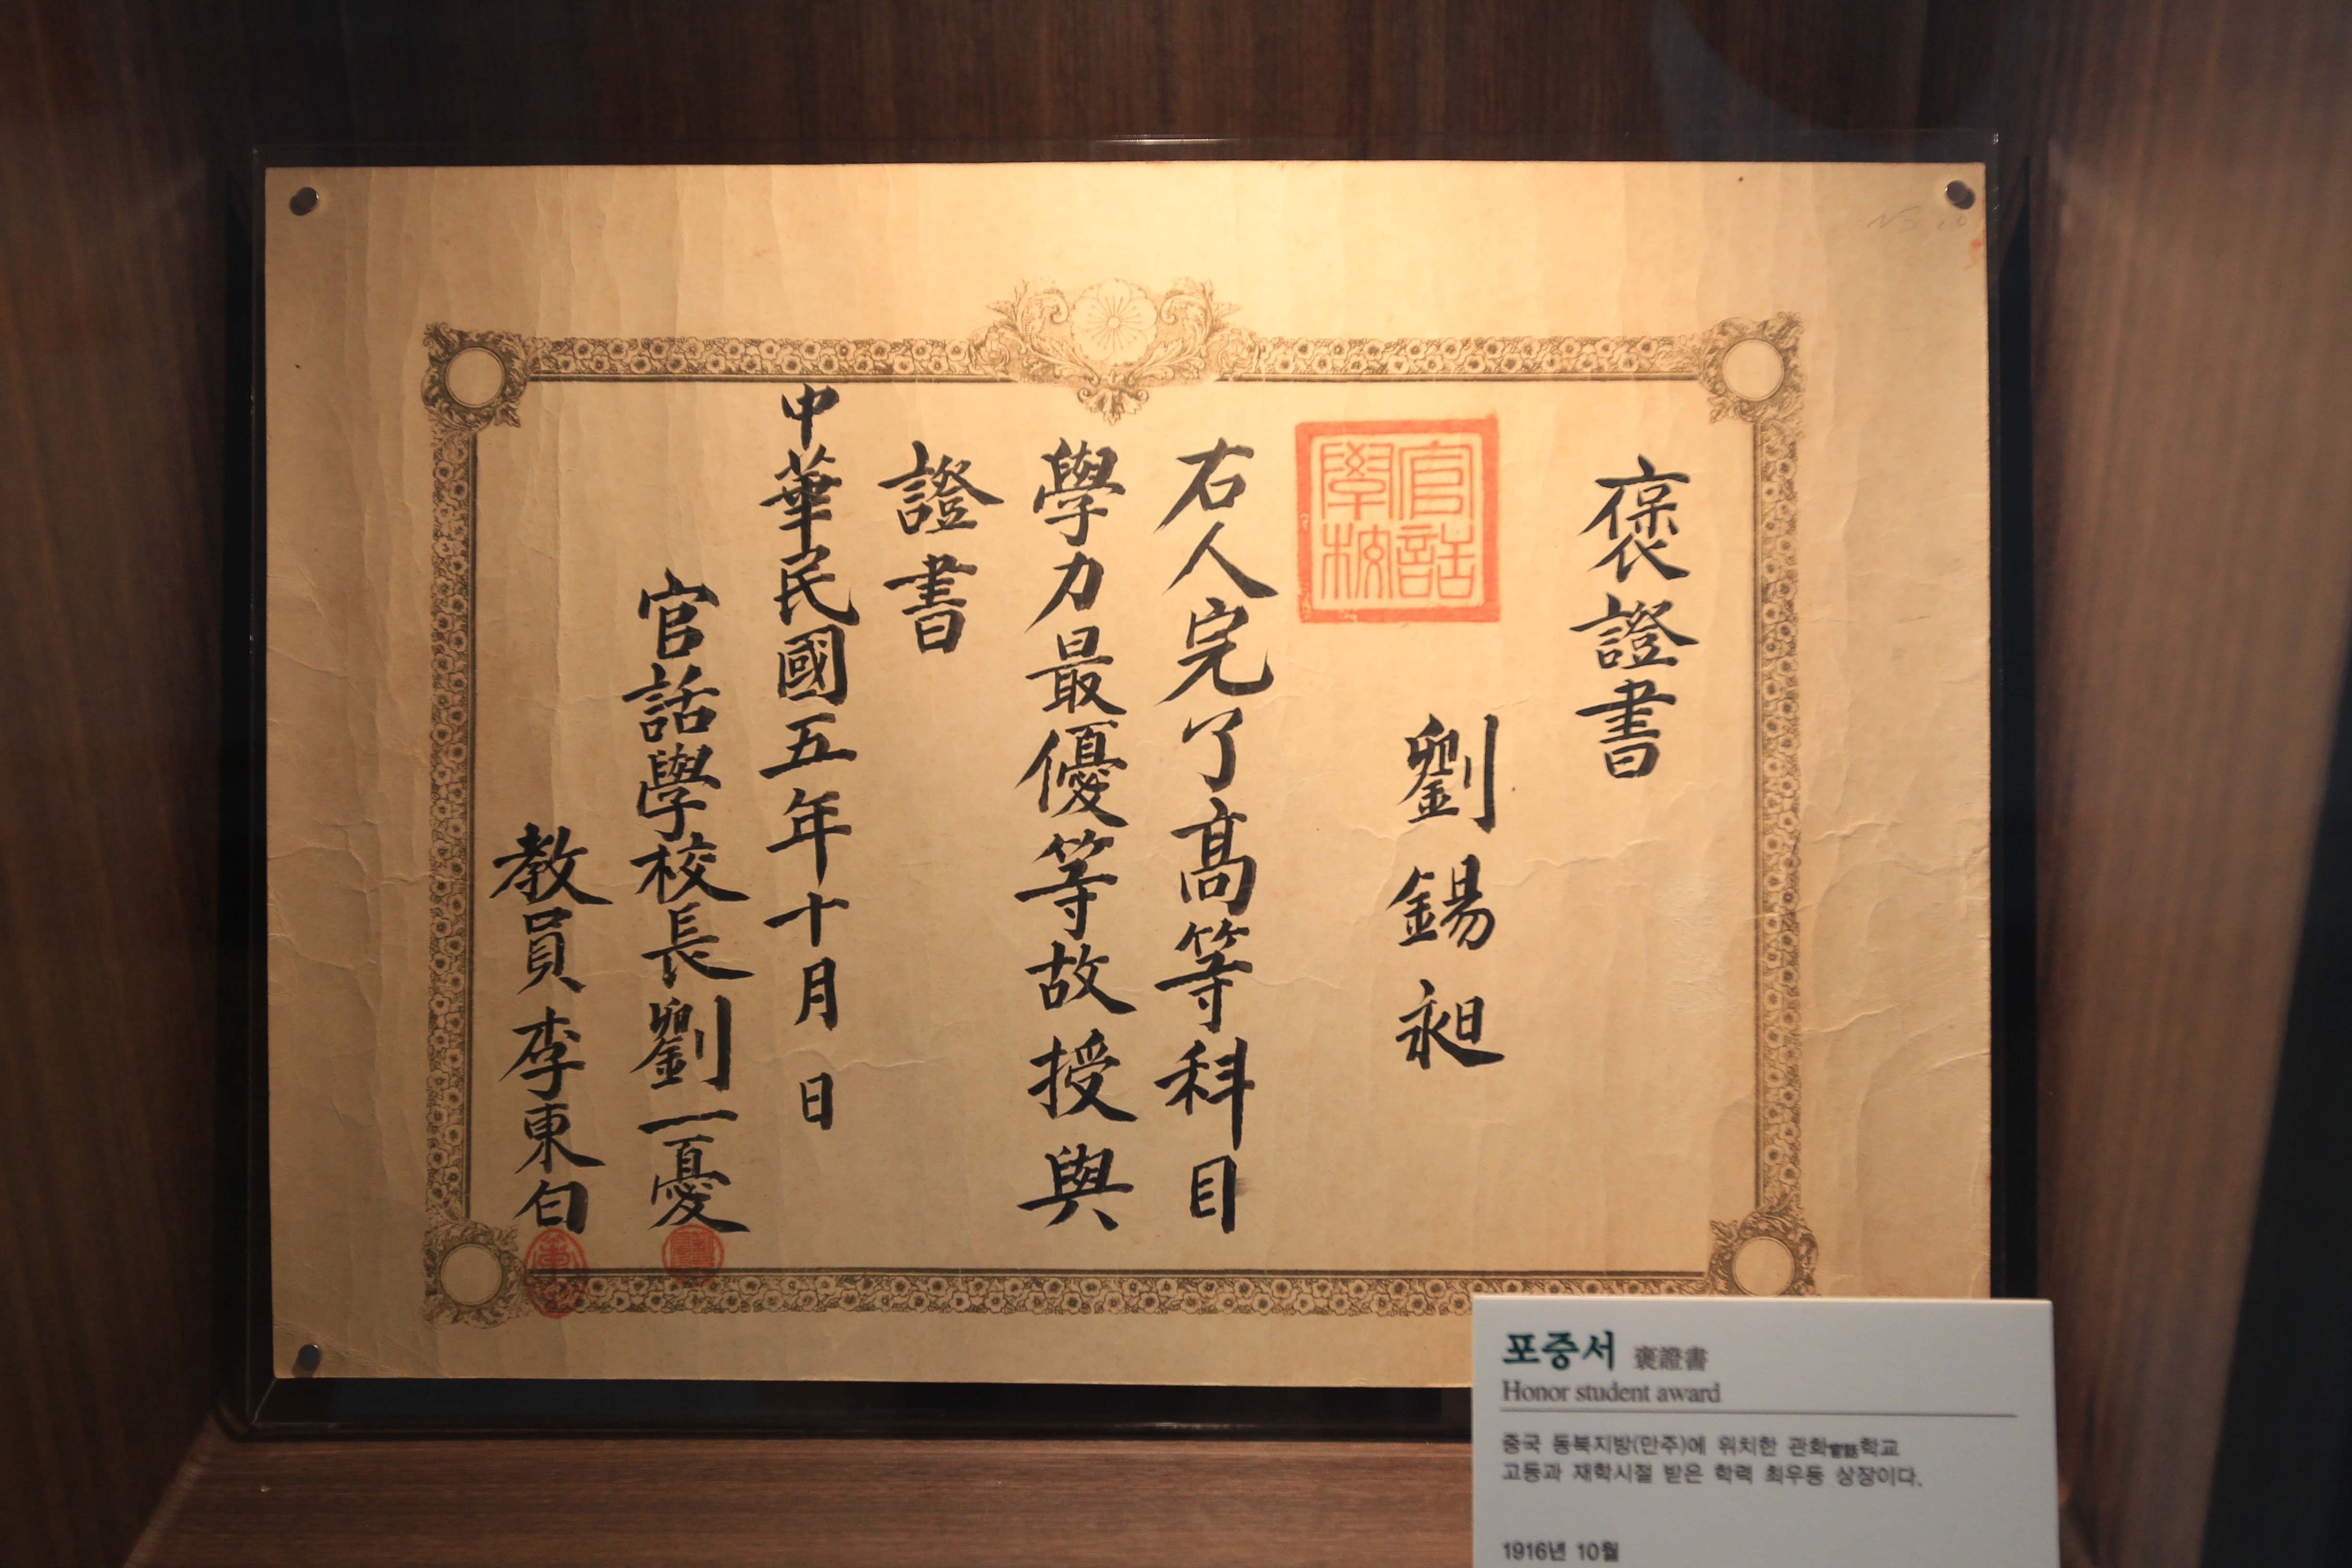 褒證書
劉錫昶
官話
學校
右人完了高等科目
學力最優等故授與
證書
中華民國五年十月 日
官話學校長劉一憂
教員李東白
포증서 褒證書
Honor student award
중국 동북지방(만주)에 위치한 관화官話학교
고등과 재학시절 받은 학력 최우등 상장이다.
1916년 10월